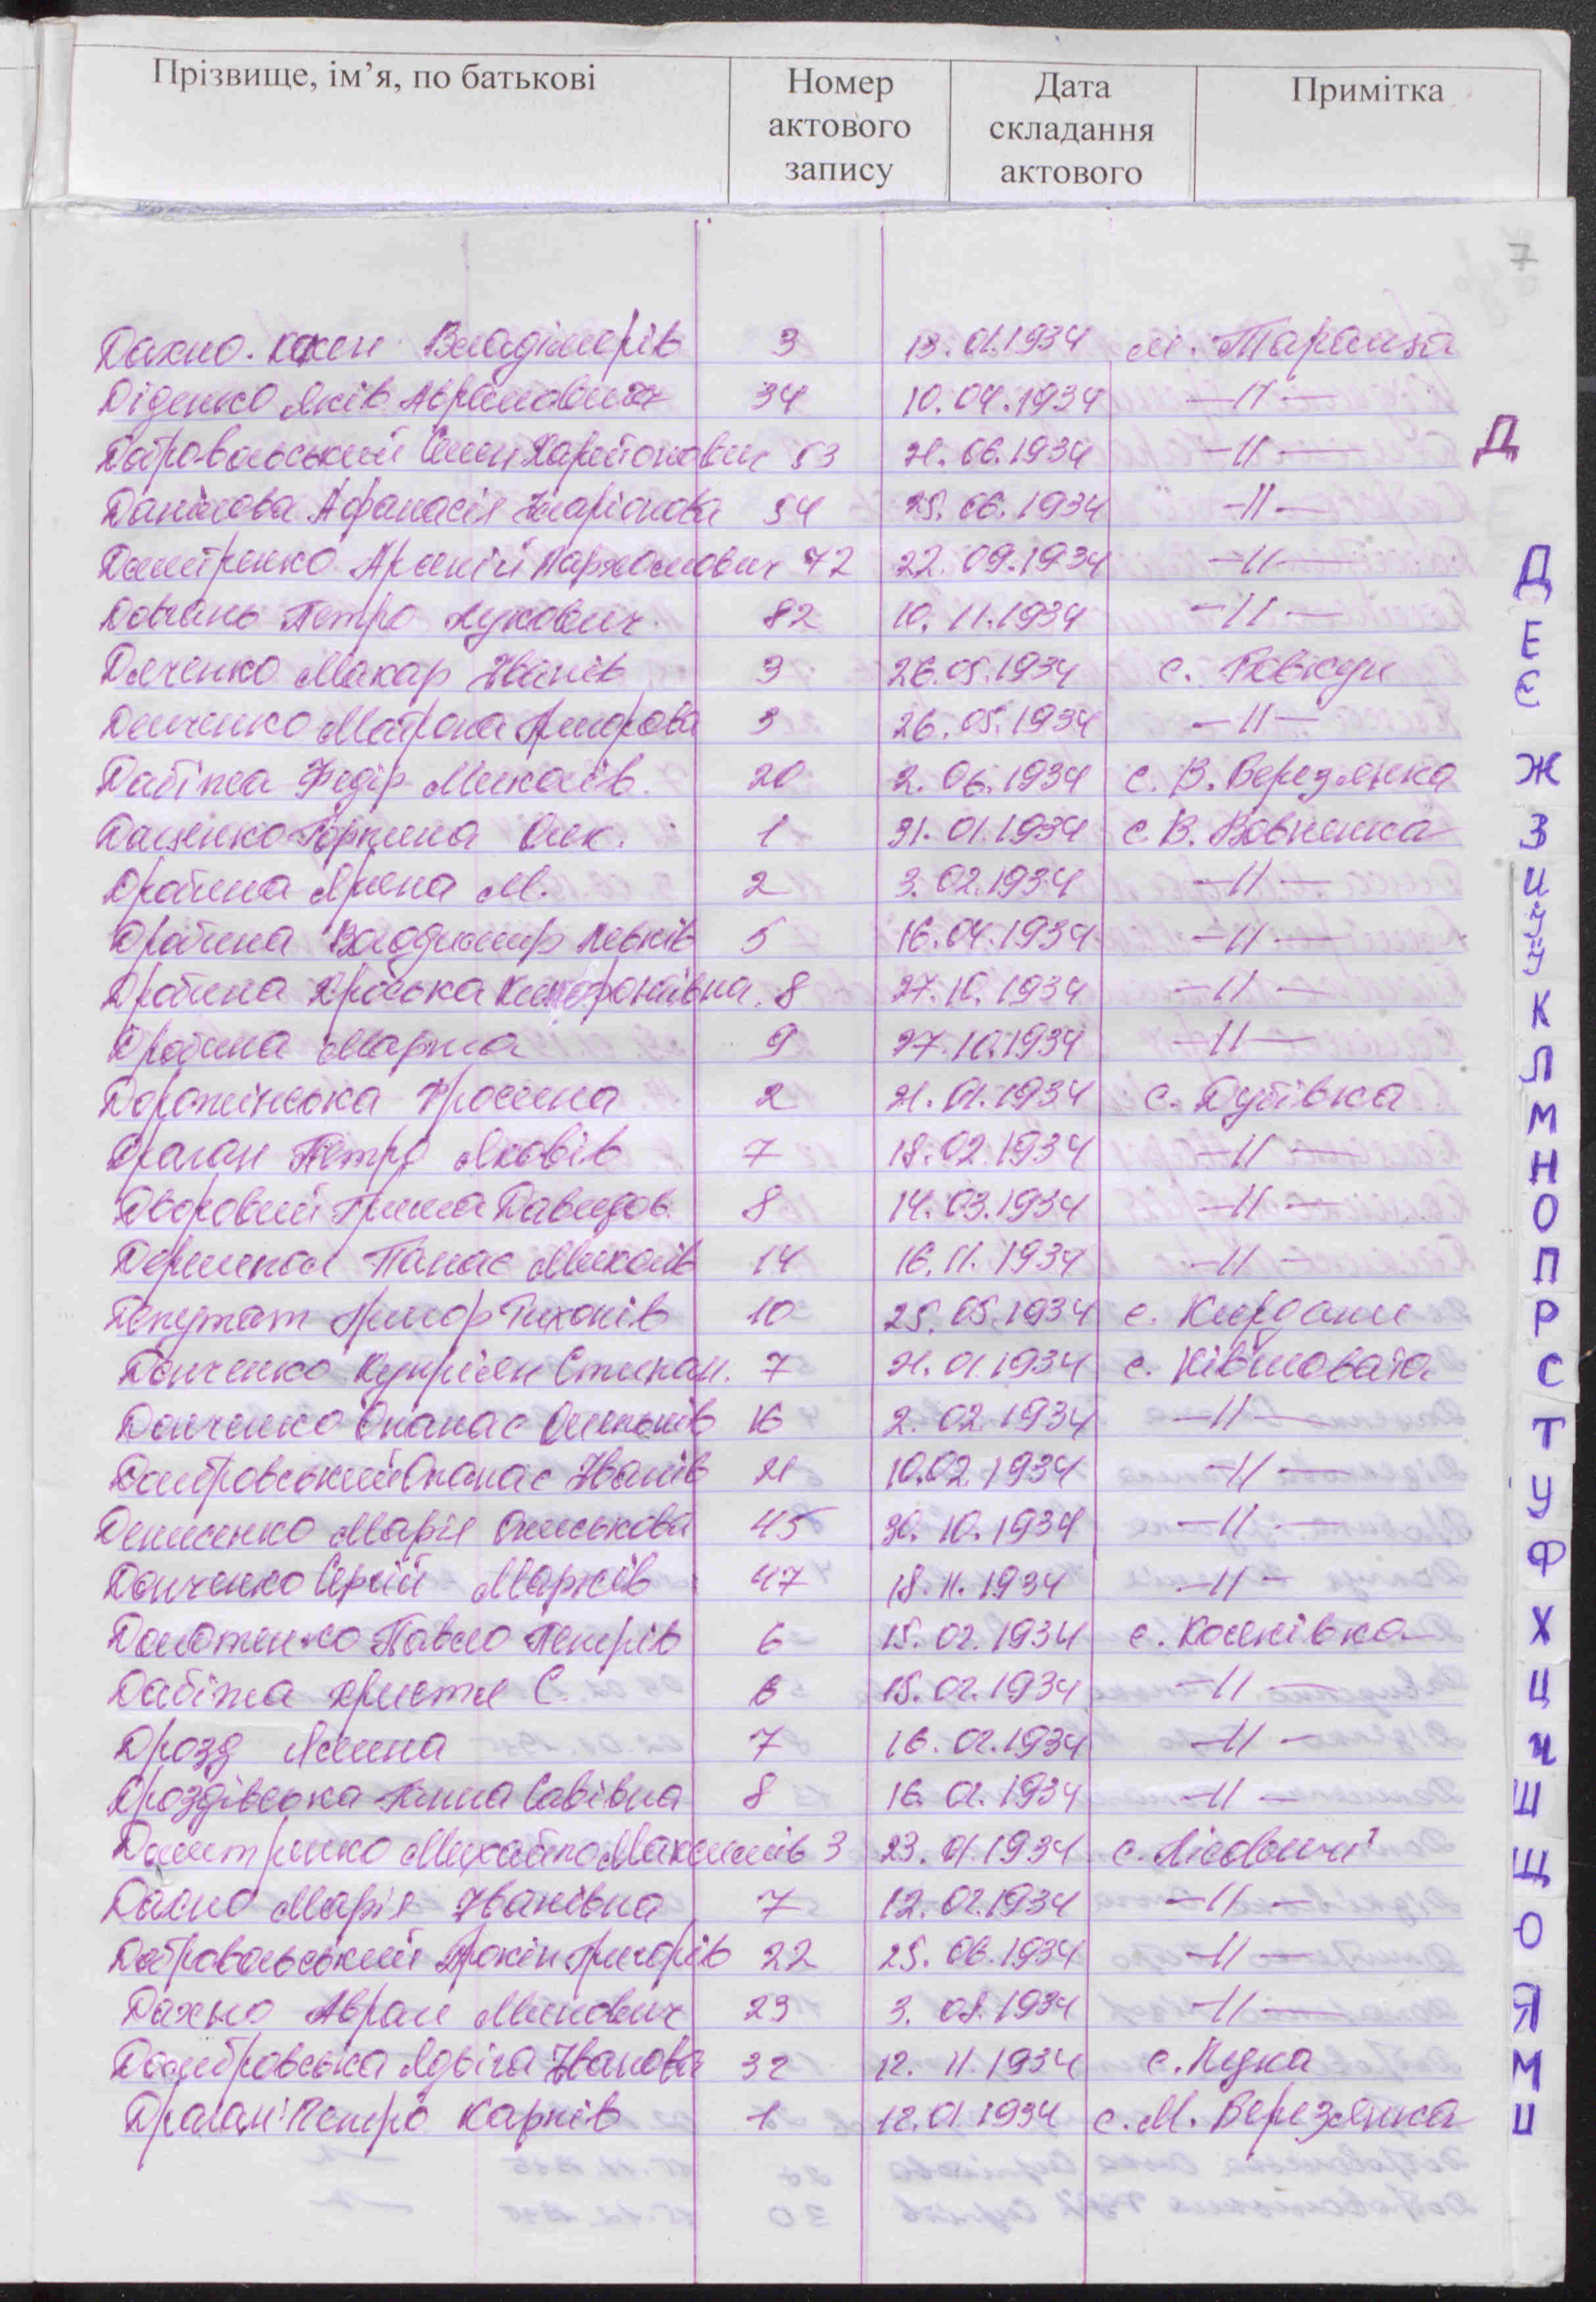 Прізвище, ім’я, по батькові Номер актового запису Дата складання актового Примітка
7
Дахно. Владімерів 3 13.01.1934 м. Тараща
Діденко Яків Аврамович 34 10.04.1934 —||—
Д
Добровольський Семен Харитонович 53 21.06.1934 —||—
Данілова Афанасія Іларіонова 54 25.06.1934 —||—
Дмитренко Арсеній Пархомович 72 22.09.1934 —||—
Довгань Петро Лукович 82 10.11.1934 —||—
Дяченко Макар Іванів 3 26.05.1934 с.
Демченко Матрона 3 26.05.1934 —||—
Дабіжа Федір Миколів. 20 2.06.1934 с. В. Березянка
Даценко Горпина Олек. 1 31.01.1934 с. В. Вовнянка
Дробина М. 2 3.02.1934 —||—
Дробина Владимир Левків 5 16.04.1934 —||—
Дробина 8 27.10.1934 —||—
Дробина Марта 9 27.10.1934 —||—
Дорожинська Фросина 2 21.01.1934 с. Дубівка
Драган Петро Яковів 7 18.02.1934 —||—
Дворовий Гриша Давидов. 8 14.03.1934 —||—
Панас Миколів 14 16.11.1934 —||—
Депутат Григор Тихонів 10 25.05.1934 с. Кирдани
Донченко Купріян Степан. 7 21.01.1934 с. Ківшовата
Донченко Опанас 16 2.02.1934 —||—
Домбровський Опанас Іванів 21 10.02.1934 —||—
Денисенко Марія Оиськова 45 30.10.1934 —||—
Донченко Сергій Марків 47 18.11.1934 —||—
Павло Петрів 6 15.02.1934 с. Косяківка
Дабіжа Христя С. 6 15.02.1934 —||—
Дрозд 7 16.02.1934 —||—
Дроздівська Ганна Савівна 8 16.02.1934 —||—
Михайло Максимів 3 23.01.1934 с. Лісовичі
Дахно Марія Іванівна 7 12.02.1934 —||—
Добровольський Григорів 22 25.06.1934 —||—
Дахно Аврам Минович 23 3.08.1934 —||—
Домбровська Ядвіга Іванова 32 12.11.1934 с. Лука
Драган Петро Карпів 1 12.01.1934 с. М. Березянка
Д
Е
Є
Ж
З
И
І
Ї
К
Л
М
Н
О
П
Р
С
Т
У
Ф
Х
Ц
Ч
Ш
Щ
Ю
Я
М
Ц